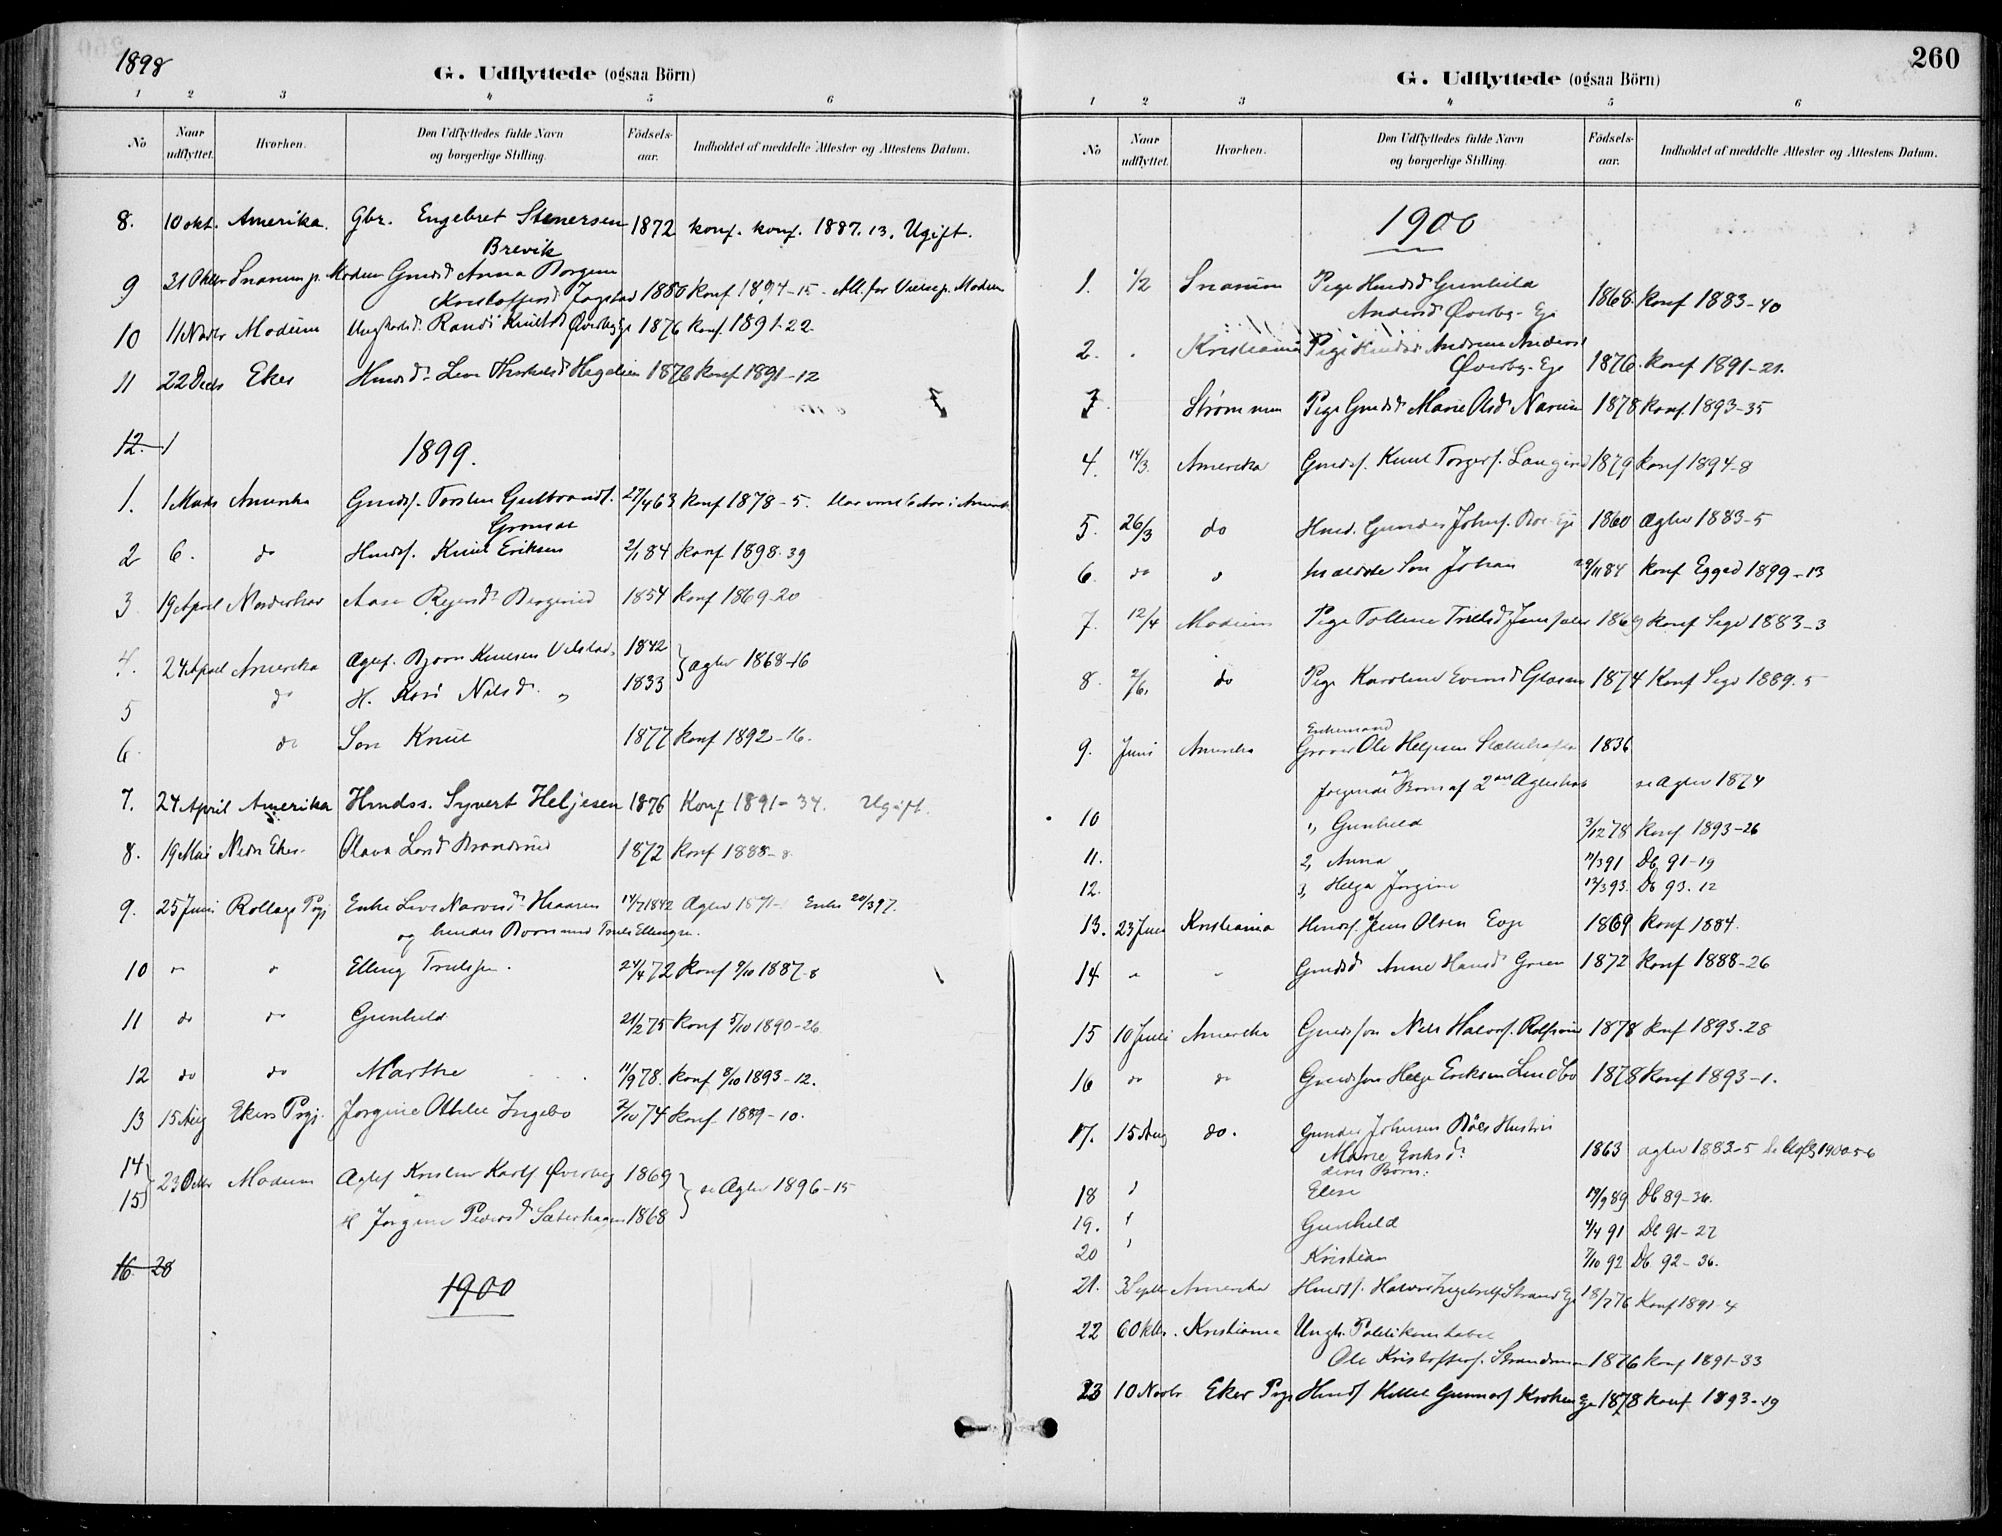 1898
G. Udflyttede (ogsaa Börn)
1 2 3 4 5 6
No Naar udflyttet. Hvorhen. Den Udflyttedes fulde Navn og borgerlige Stilling. Födsels-aar. Indholdet af meddelte Attester og Attestens Datum.
8. 10 okt. Amerika. Gbr. Engebret Stenersen 1872 konf. konf. 1887. 13. Ugift.
Brevik
9 31 Oktbr Snarum p. Modum Gmdsd Anna Borgine
Kristoffersd 1880 konf 1894-15 - Att. for Vielse p. Modum
10 11 Novbr Modum Randi Knutsd Øverby Eje 1876 konf. 1891-22.
11 22 Decbr Eker Hmdsd. Live 1876 konf 1891-12
12. 1
1899.
1. 1 Marts Amerika Gmdss. Torsten Gulbrands. 27/4 63 konf 1878-5. Har været 6 Aar i Amerik
2 6. do Hmdss. Knut Eriksen 2/1 84 konf 1898. 39
3 19 April Norderhov Aase 1854 konf 1869-20
4. 24 April Amerika Bjørn Knutsen 1842 } agtev 1868-16
5 do H. Kari Nilsd. „ 1833
6. do Søn Knut 1877 konf 1892-16.
7. 24 April Amerika Hmdss. Syvert Heljesen 1876 Konf 1891-34. Ugift.
8. 19 Mai Nedre Eker. Olava 1872 konf 1888-8
9. 25 Juni Rollags Pgj Enke Live 14/7 1842 Agtev 1871- Enke 20/3 97.
og hendes Børn med Truls Ellingsen.
10 " " Elling Trulssen. 24/4 72 konf 9/10 1887-8
11 do do Gunhild 21/2 75 konf 5/10 1890-26
12 do do Marthe 11/9 78. konf 8/10 1893-12.
13 15 Aug Ekers Pgj. Jørgine Othilie Ingebo 2/10 74 konf 1889-10.
14 23 Oktbr Modum Kristian Karls Øverby 1869 } se Agtev 1896-15
15 H Jørgine Pedersd Sæterhagen 1868
16. 28
1900
260
G. Udflyttede (ogsaa Börn)
1 2 3 4 5 6
No Naar udflyttet. Hvorhen. Den Udflyttedes fulde Navn og borgerlige Stilling. Födsels-aar. Indholdet af meddelte Attester og Attestens Datum.
1900
1. 1/2 Snarum Pige Hmdsd Gunhild
Andersd Øverby-Eje 1868. konf 1883-40
2. . Kristiania Pige Hmdsd Andrine Anders
Øverby-Eje 1876. konf 1891-21.
3. Strømmen Pige Gmdsd Marie Olsd Narum 1878 konf. 1893-35
4. 14/3. Amerika Gmdss. Knut Torgers. 1879 konf 1894-8
5. 26/3 do Hmd. Gunder Johns. Bøe-Eje 1860 Agtev 1883-5
6. do " hs ældste Søn Johan 29/11 84 konf Eggedal 1899-13
7. 12/4 Modum Pige Tolline Trulsd 1869 konf Sigd 1883-3
8. 2/6. do Pige Karoline Evensd Glesne 1874 Konf Sigd 1889. 5
Enkemand
9. Juni Amerika Ole Helgesen 1836
følgende Børn af 2det Ægteskab se Agtev 1874
10 1, Gunhild 3/12 78 konf. 1893-26
11. 2, Anna 11/3 91 Db. 91-19
12. 3, Helga Jørgine 12/3 93. Db 93. 12
13. 23 Juni Kristiania Hmdss. Jens Olsen Eeje 1869 konf 1884.
14 " " Gmdsd Anne Hansd Green 1872 konf 1888-26
15 10 Juli Amerika Gmdssøn Nils Halvors. 1878 konf 1893-28
16 " " Gmdssøn Helge Eriksen Lindbo 1878 konf 1893-1.
17. 15 Aug do. Gunder Johnsen Bøes Hustru
Marie Eriksd. 1863 agtev 1883-5
deres Børn:
18 " Elise 19/9 89 Db 89-36.
19. " Gunhild 4/4 91 Db 91-27
20 " Kristian 7/10 92 Db 92-36.
21. 3 Septbr Amerika Hmdss. Halvor Eje 18/7 76 Konf 1891-4
22 6 Oktbr. Kristiania Ungk. Politikonstabel
Ole Kristoffers. 1876 konf 1891-33
23 10 Novbr Eker Pgj Hmdss Kittel Gunnars Eje 1878 konf 1893-19